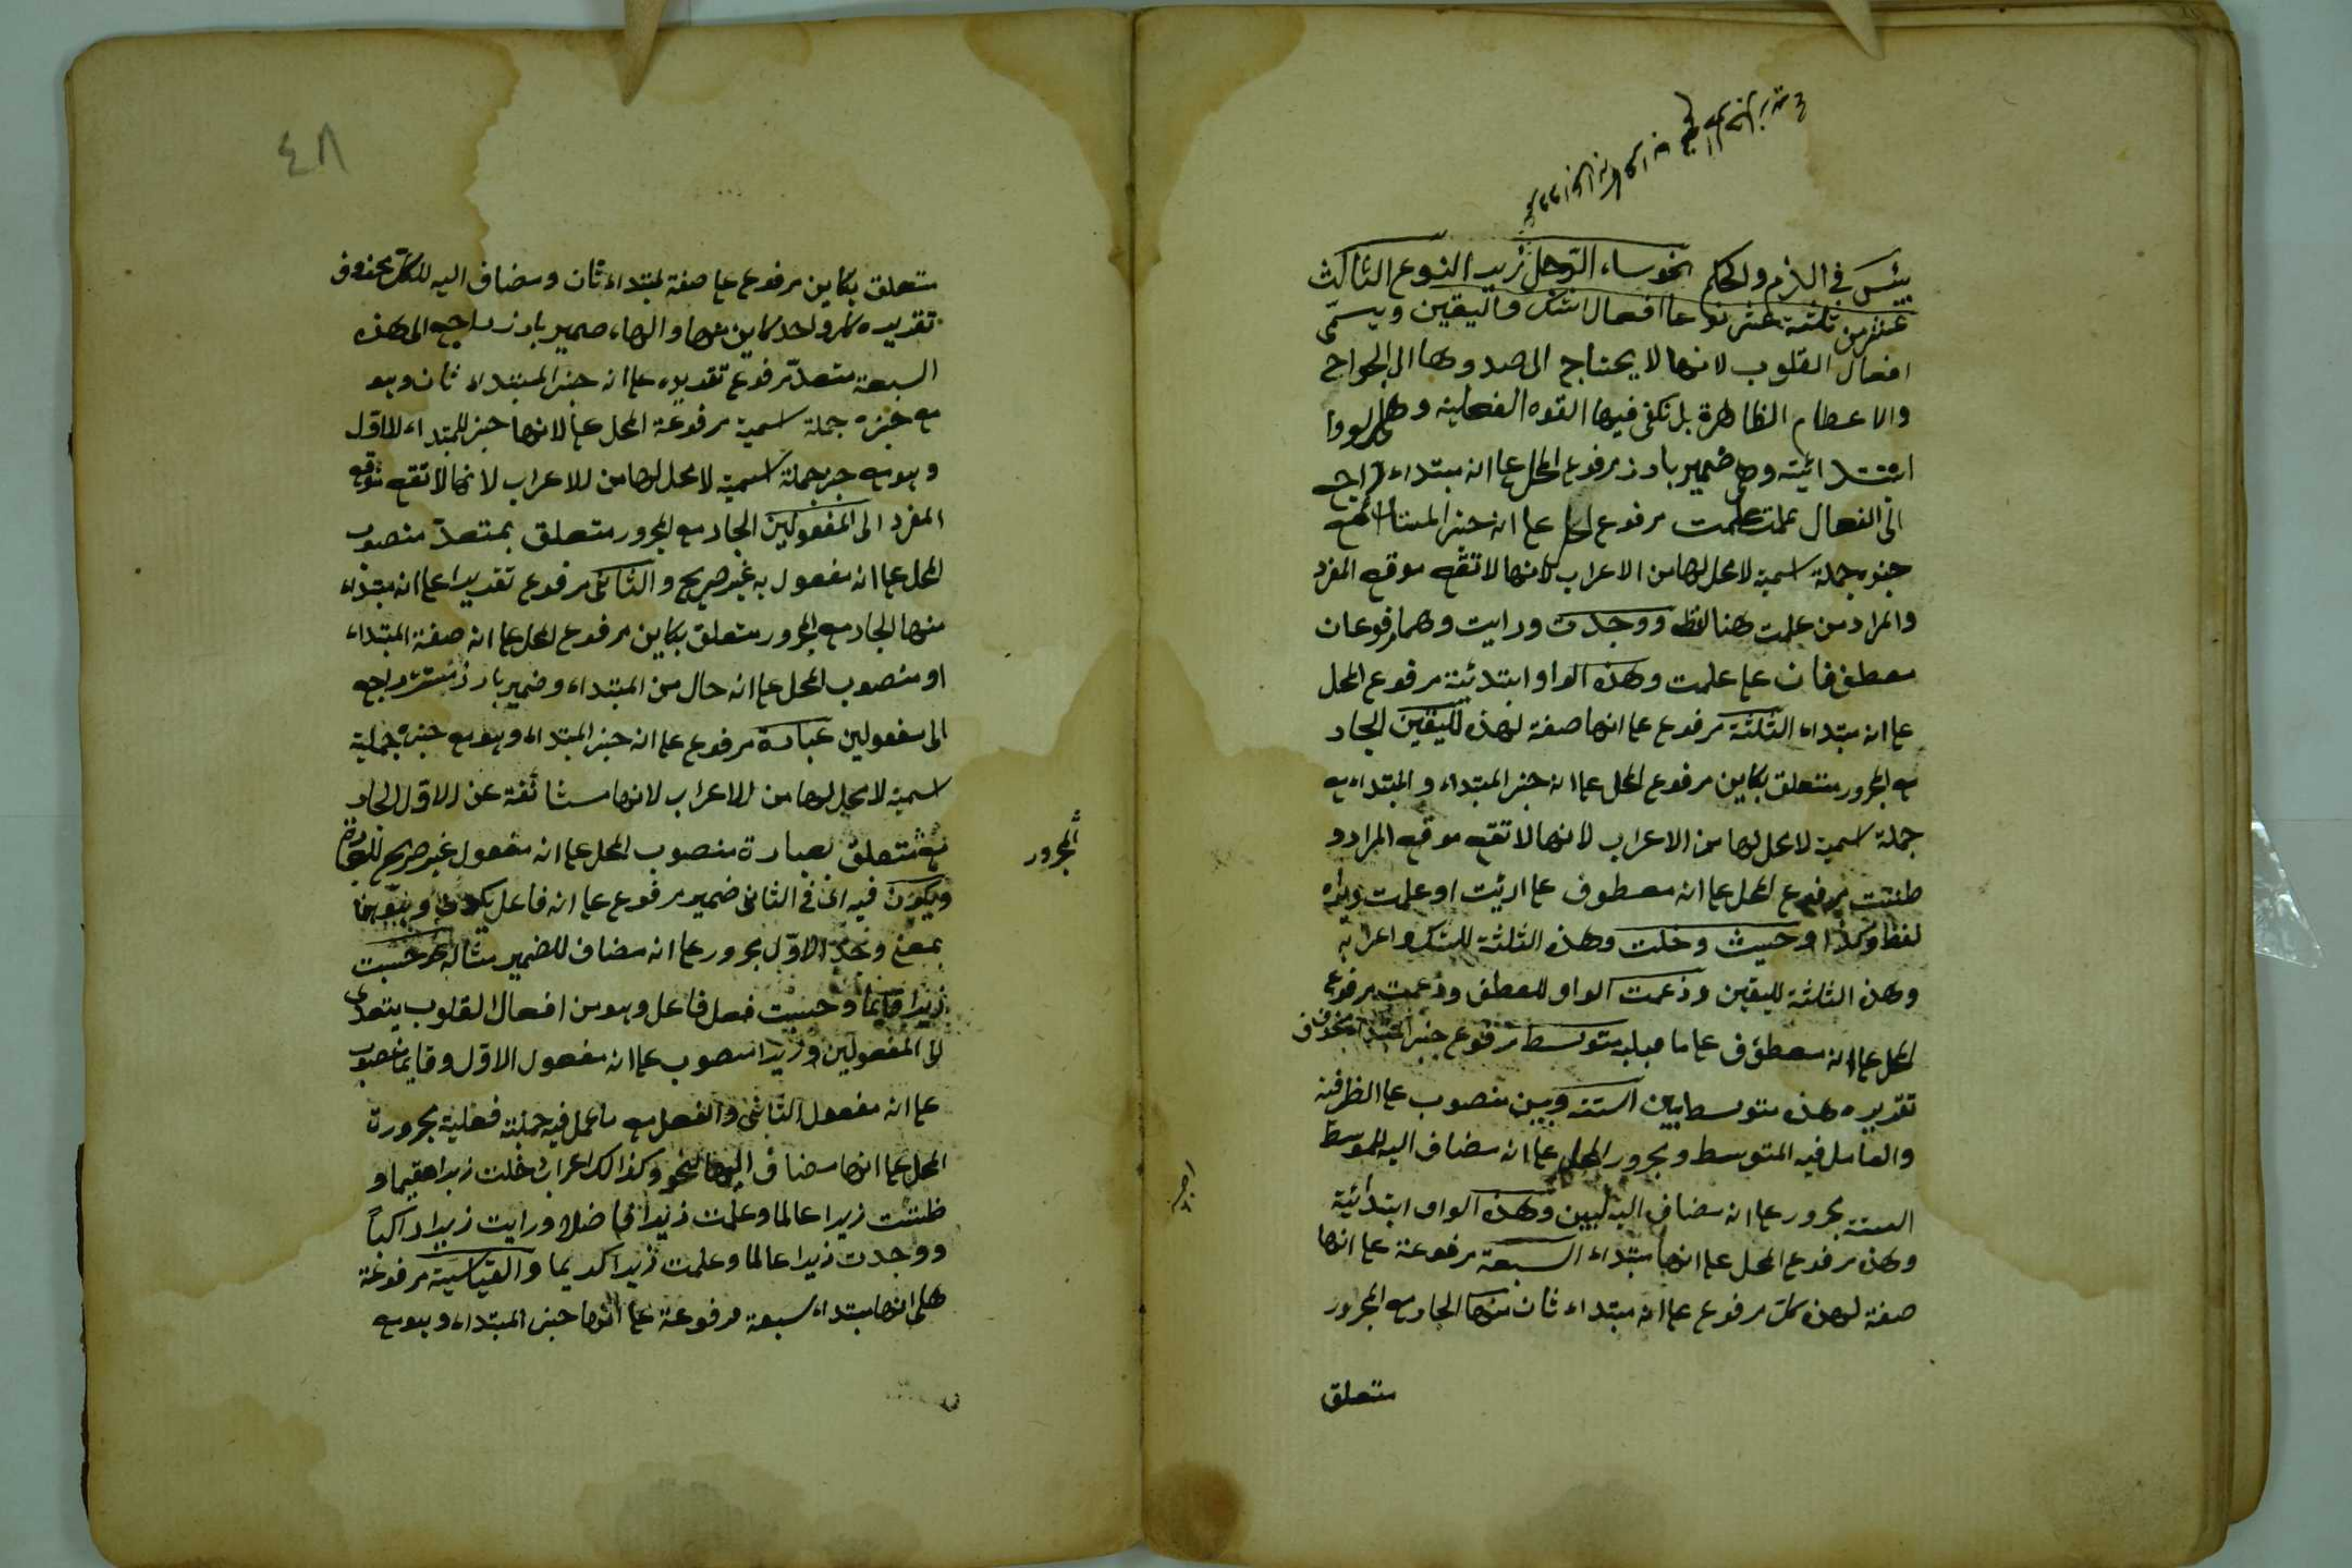 بئس في الذم والحكم نحو ساء الرجل زيد النوع الثالث
عشر من ثلثة عشر نوعا افعال الشك واليقين ويسمّى
افعال القلوب لانها لا يحتاج الى صدورها الى الجوارح
والاعضاء الظاهرة بل تكفى فيها القوة العقلية وهى الواو
ابتدائية وهى ضمير بارز مرفوع المحل عا انه مبتداء راجع
الى افعال علمت مرفوع المحل عا انه خبر المبتداء مع
خبره جملة اسمية لا محل لها من الاعراب لانها لا تقع موقع المفرد
والمراد من علمت هنا لفظه ووجدت ورايت وهما مرفوعان
معطوفان عا علمت وهذه الواو ابتدئية مرفوع المحل
عا انه مبتداء الثلثة مرفوع عا انها صفة لهذه لليقين الجار
مع المجرور متعلق بكاين مرفوع المحل عا انه خبر المبتداء والمبتداء مع
جملة اسمية لا محل لها من الاعراب لانها لا تقع موقع المراد و
ظننت مرفوع المحل عا انه معطوف عا ارئيت او علمت
لفظ وكذا وحسبت وخلت وهذه الثلثة للشك واعرابه
وهذه الثلثة لليقين وزعمت الواو للعطف وزعمت مرفوع
المحل عا انه معطوف عا ما قبله متوسط مرفوع خبر المبتداء محذوف
تقديره هذه متوسط بين الستة وبين منصوب عا الظرفية
والعامل فيه المتوسط ومجرور المحل عا انه مضاف اليه للموسط
الستة مجرور عا انه مضاف اليه لبين وهذه الواو ابتدائية
وهذه مرفوع المحل عا انها مبتداء السبعة مرفوعة عا انها
صفة لهذه كل مرفوع عا انه مبتداء ثان منها الجار مع المجرور
متعلق
٤٨
متعلق بكاين مرفوع عا صفة لمبتداء ثان ومضاف اليه للكل محذوف
تقديره كل واحد كاين منها والهاء ضمير بارز راجع الى هذه
السبعة متعدّ مرفوع تقديره عا انه خبر المبتداء ثان وهو
مع خبره جملة اسمية مرفوعة المحل عا لانها خبر للمبتداء الاول
وهو مع خبره جملة اسمية لا محل لها من الاعراب لانها لا تقع موقع
المفرد الى المفعولين الجار مع المجرور متعلق بمتعدّ منصوب
المحل عا انه مفعول به غير صريح والثانى مرفوع تقديرا عا انه مبتداء
منها الجار مع المجرور متعلق بكاين مرفوع المحل عا انه صفة المبتداء
او منصوب المحل عا انه حال من المبتداء وضمير بارز مستتر راجع
الى مفعولين عبارة مرفوع عا انه خبر المبتداء وهو مع خبره جملة
اسمية لا محل لها من الاعراب لانها مستأنفة عن الاول الجار
المجرور
مع متعلق بعبارة منصوب المحل عا انه مفعول غير صريح للعبارة
ويكون فيه اى في الثانى ضمير مرفوع عا انه فاعل يكون
بمعنى الاول مجرور عا انه مضاف للضمير مثاله نحو حسبت
زيدا قايما وحسبت فعل فاعل وهو من افعال القلوب يتعدى
الى المفعولين وزيدا منصوب عا انه مفعول الاول وقايما منصوب
عا انه مفعول الثانى والفعل مع ما عمل فيه جملة فعلية مجرورة
المحل عا انها مضاف اليها لنحو وكذالك اعراب خلت زيدا مقيما و
ظننت زيدا عالما وعلمت زيدا فاضلا ورايت زيدا راكباً
ووجدت زيدا عالما وعلمت زيدا كريما والقياسية مرفوعة
على انها مبتداء سبعة مرفوعة عا انها خبر المبتداء وهو مع